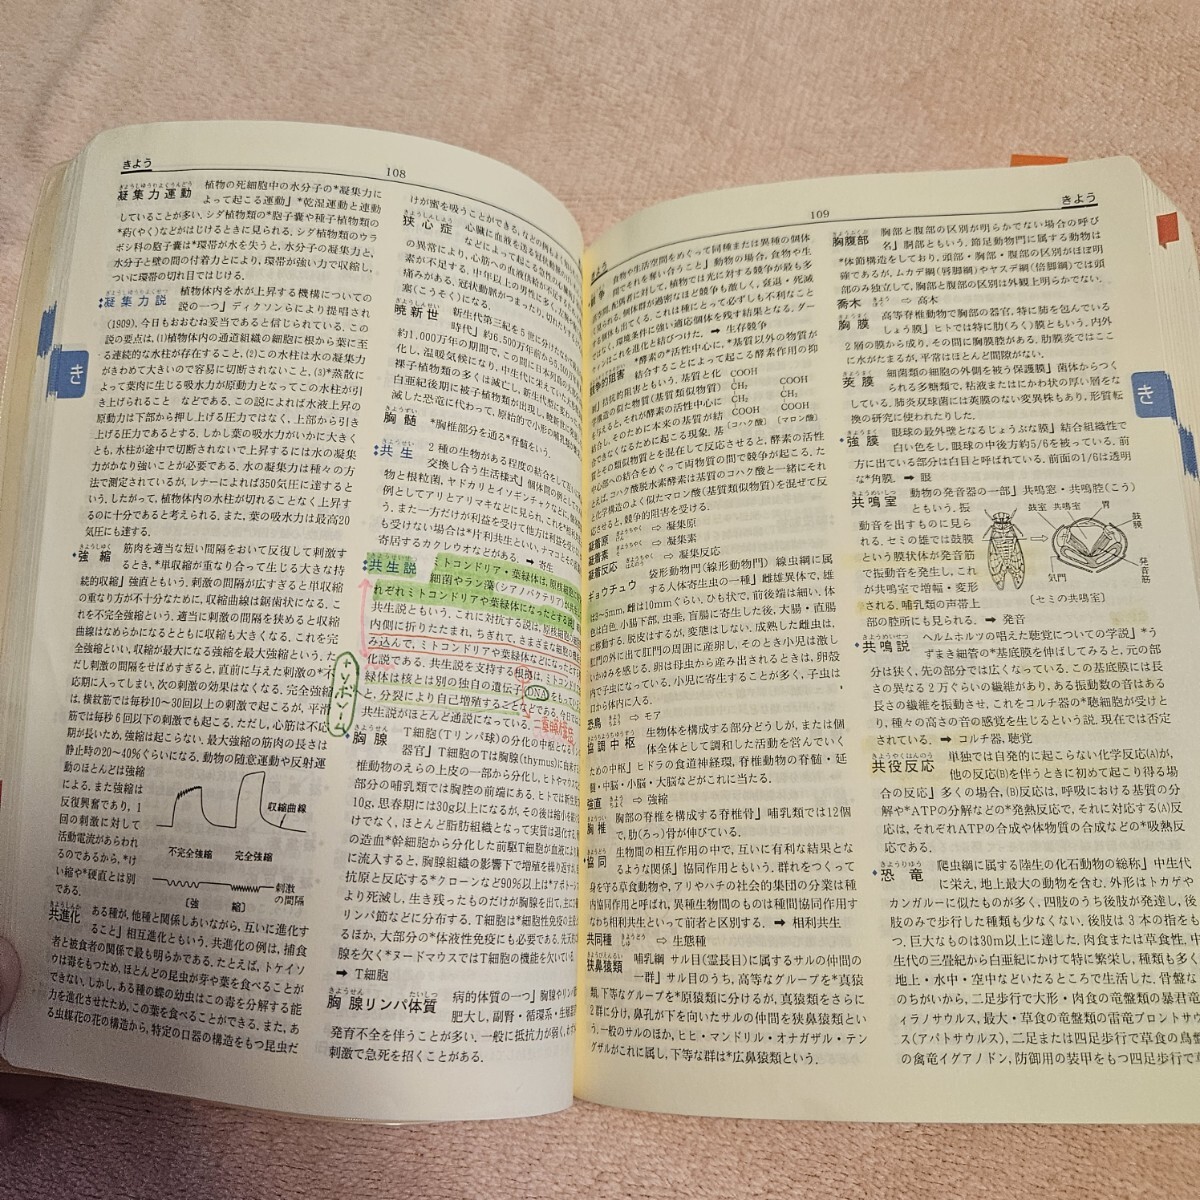 きよう
108
凝集力運動 植物の死細胞中の水分子の*凝集力に
よって起こる運動」*乾湿運動と連動
していることが多い. シダ植物類の*胞子嚢や種子植物類の
*葯(やく)などがはじけるときに見られる. シダ植物類のウラ
ボシ科の胞子嚢は*環帯が水を失うと, 水分子の凝集力と,
水分子と壁の間の付着力とにより, 環帯が強い力で収縮し,
ついに環帯の切れ目ではじける.
凝集力説 植物体内を水が上昇する機構についての
説の一つ」ディクソンらにより提唱され
(1909), 今日もおおむね妥当であると信じられている. この
説の要点は, (1)植物体内の通道組織の細胞に根から葉に至
る連続的な水柱が存在すること, (2)この水柱は水の凝集力
がきわめて大きいので容易に切断されないこと, (3)*蒸散に
よって葉肉に生じる吸水力が原動力となってこの水柱が引
き上げられること などである. この説によれば水液上昇の
原動力は下部から押し上げる圧力ではなく, 上部から引き
上げる圧力であるとする. しかし葉の吸水力がいかに大きく
とも, 水柱が途中で切断されないで上昇するには水の凝集
力がかなり強いことが必要である. 水の凝集力は種々の方
法で測定されているが, レナーによれば350気圧に達すると
いう. したがって, 植物体内の水柱が切れることなく上昇す
るのに十分であると考えられる. また, 葉の吸水力は最高20
気圧にも達する.
強縮 筋肉を適当な短い間隔をおいて反復して刺激す
るとき, *単収縮が重なり合って生じる大きな持
続的収縮」強直ともいう. 刺激の間隔が広すぎると単収縮
の重なり方が不十分なために, 収縮曲線は鋸歯状になる. こ
れを不完全強縮という. 適当に刺激の間隔を狭めると収縮
曲線はなめらかになるとともに収縮も大きくなる. これを完
全強縮といい, 収縮が最大になる強縮を最大強縮という. た
だし刺激の間隔をせばめすぎると, 直前に与えた刺激の*不
応期に入ってしまい, 次の刺激の効果はなくなる. 完全強縮
は, 横紋筋では毎秒10〜30回以上の刺激で起こるが, 平滑
筋では毎秒6回以下の刺激でも起こる. ただし, 心筋は不応
期が長いため, 強縮は起こらない. 最大強縮の筋肉の長さは
静止時の20〜40%ぐらいになる. 動物の随意運動や反射運
動のほとんどは強縮
による. また強縮は
反復興奮であり, 1
回の刺激に対して
活動電流があらわれ
るのであるから, *け
い縮や*硬直とは別
である.
収縮曲線
不完全強縮 完全強縮
刺激
の間隔
〔強 縮〕
共進化 ある種が, 他種と関係しあいながら, 互いに進化す
ること」相互進化ともいう. 共進化の例は, 捕食
者と被食者の関係で最も明らかである. たとえば, トケイソ
ウは毒をもつため, ほとんどの昆虫が芽や葉を食べることが
できない. しかし, ある種の蝶の幼虫はこの毒を分解する能
力を進化させたため, この葉を食べることができる. また, あ
る虫媒花の花の構造から, 特定の口器の構造をもつ昆虫だ
けが蜜を吸うことができる, などの例も
狭心症 心臓に血液を送る冠
などによって起こる急性の
の異常により, 心筋への血液供給が
素が不足する. 中年以上の男性に多く
痛みがある. 冠状動脈がつまったり, 切れたり
塞(こうそく)になる.
暁新世 新生代第三紀を5世に分けたなか
時代」約6,500万年前から5,
約1,000万年の期間で, この間に日本列島
化し, 温暖気候になり, 中生代に栄えていた
裸子植物類の多くは滅亡し, 新生代型に
白亜紀後期に被子植物類が出現し, 暁新世
滅した恐竜に代わって, 原始的で小形の
胸髄 *胸椎部分を通る*脊髄をいう.
共生 2種の生物がある程度の結合をして
交換し合う生活様式」個体間の例として
物と根粒菌, ヤドカリとイソギンチャクなど,
例としてアリとアリマキなどに見られ, これを*相利
う. また一方だけが利益を受けて他方は利益を受け
も受けない場合は*片利共生といい, ナマコとその
寄居するカクレウオなどがある. ➡ 寄生
共生説 ミトコンドリア・葉緑体は, 原核細胞
細菌やラン藻(シアノバクテリア)が
れぞれミトコンドリアや葉緑体になったとする説
共生説ともいう. これに対抗する説は, 原核細胞の
内側に折りたたまれ, ちぎれて, さまざまな細胞の
み込んで, ミトコンドリアや葉緑体などになったと
化説である. 共生説を支持する根拠は, ミトコンドリア
緑体は核とは別の独自の遺伝子DNAをもって
と, 分裂により自己増殖することなどである. 今日では
共生説がほとんど通説になっている.
+リボソーム
二重膜構造
胸腺 T細胞(Tリンパ球)の分化の中枢となる
器官」T細胞のTは胸腺(thymus)に由来
椎動物のえらの上皮の一部から分化し, ヒトやマウスな
部分の哺乳類では胸腔の前端にある. ヒトでは新生児
10g, 思春期には30g以上になるが, その後は縮小
けでなく, ほとんど脂肪組織となって実質は退化す
の造血*幹細胞から分化した前駆T細胞が血液により
に流入すると, 胸腺組織の影響下で増殖を繰り返す
抗原と反応する*クローンなど90%以上は*アポトー
より死滅し, 生き残ったものだけが胸腺を出て, 主に
リンパ節などに分布する. T細胞は*細胞性免疫の主
るほか, 大部分の*体液性免疫にも必要である. 先天的
腺を欠く*ヌードマウスではT細胞の機能を欠いている.
➡ T細胞
胸腺リンパ体質 病的体質の一つ」胸腺やリンパ
肥大し, 副腎・循環系・生殖
発育不全を伴うことが多い. 一般に抵抗力が弱く, わずか
刺激で急死を招くことがある.
き
109
きよう
競争 食物や生活空間をめぐって同種または異種の個体
間でそれを奪い合うこと」動物の場合, 食物や生
活空間, 配偶者に対して, 植物では光に対する競争が最も多
く見られる. 個体群が過密なほど競争も激しく, 衰退・死滅
する個体も出てくる. これは種にとって必ずしも不利なこと
ではなく, 環境条件に強い適応個体を残す結果となる. ダー
ウィンはこれを進化と結びつけた. ➡ 生存競争
競争的阻害 *酵素の*活性中心に, *基質以外の物質が
結合することによって起こる酵素作用の抑
制」拮抗的阻害ともいう. 基質と化
学構造の似た物質(基質類似物質)
を与えると, それが酵素の活性中心に
結合し, そのために本来の基質が結
合できなくなるために起こる現象. 基
COOH
CH₂
CH₂
COOH
〔コハク酸〕
COOH
CH₂
COOH
〔マロン酸〕
質とその類似物質とを混在して反応させると, 酵素の活性
中心部への結合をめぐって両物質の間で競争が起こる. た
とえば, コハク酸脱水素酵素は基質のコハク酸と一緒にそれ
と化学構造のよく似たマロン酸(基質類似物質)を混ぜて反
応させると, 競争的阻害を受ける.
凝着原 ⇨ 凝集原
凝着素 ⇨ 凝集素
凝着反応 ⇨ 凝集反応
ギョウチュウ 袋形動物門(線形動物門) 線虫綱に属
する人体寄生虫の一種」雌雄異体で, 雄
は3〜5mm, 雌は10mmぐらい. ひも状で, 前後端は細い. 体
色は白色. 小腸下部, 虫垂, 盲腸に寄生した後, 大腸・直腸
に移動する. 脱皮はするが, 変態はしない. 成熟した雌虫は,
肛門の外に出て肛門の周囲に産卵し, そのとき小児は激し
いかゆみを感じる. 卵は母虫から産み出されるときは, 卵殻
内で子虫になっている. 小児に寄生することが多く, 子虫は
口から体内に入る.
恐鳥 ⇨ モア
協調中枢 生物体を構成する部分どうしが, または個
体全体として調和した活動を営んでいく
ための中枢」ヒドラの食道神経環, 脊椎動物の脊髄・延
髄・中脳・小脳・大脳などがこれに当たる.
強直 ⇨ 強縮
胸椎 胸部の脊椎を構成する脊椎骨」哺乳類では12個
で, 肋(ろっ)骨が伸びている.
協同 生物間の相互作用の中で, 互いに有利な結果とな
るような関係」協同作用ともいう. 群れをつくって
身を守る草食動物や, アリやハチの社会的集団の分業は種
内協同作用と呼ばれ, 異種生物間のものは種間協同作用す
なわち相利共生といって前者と区別する. ➡ 相利共生
共同種 ⇨ 生態種
狭鼻猿類 哺乳綱 サル目(霊長目)に属するサルの仲間の
一群」サル目のうち, 高等なグループを*真猿
類, 下等なグループを*原猿類に分けるが, 真猿類をさらに
2群に分け, 鼻孔が下を向いたサルの仲間を狭鼻猿類とい
う. 一般のサルのほか, ヒヒ・マンドリル・オナガザル・テン
グザルがこれに属し, 下等な群は*広鼻猿類という.
胸腹部 胸部と腹部の区別が明らかでない場合の呼び
名」胴部ともいう. 節足動物門に属する動物は
*体節構造をしており, 頭部・胸部・腹部の区別がほぼ明
確であるが, ムカデ綱(唇脚綱)やヤスデ綱(倍脚綱)では頭
部のみ独立して, 胸部と腹部の区別は外観上明らかでない.
喬木 ⇨ 高木
胸膜 高等脊椎動物で胸部の器官, 特に肺を包んでいる
しょう膜」ヒトでは特に肋(ろく)膜ともいう. 内外
2層の膜から成り, その間に胸膜腔がある. 肋膜炎ではここ
に水がたまるが, 平常はほとんど間隙がない.
莢膜 細菌類の細胞の外側を被う保護膜」菌体からつく
られる多糖類で, 粘液またはにかわ状の厚い層をな
している. 肺炎双球菌には莢膜のない変異株もあり, 形質転
換の研究に使われたりした.
強膜 眼球の最外壁となるじょうぶな膜」結合組織性で
白い色をし, 眼球の中後方約5/6を被っている. 前
方に出ている部分は白目と呼ばれている. 前面の1/6は透明
な*角膜. ➡ 眼
共鳴室 動物の発音器の一部」共鳴窓・共鳴腔(こう)
ともいう. 振
動音を出すものに見ら
れる. セミの雄では鼓膜
という膜状体が発音筋
で振動音を発生し, これ
が共鳴室で増幅・変形
される. 哺乳類の声帯上
部の腔所にも見られる. ➡ 発音
鼓室 共鳴室 背
鼓膜
発音筋
気門
〔セミの共鳴室〕
共鳴説 ヘルムホルツの唱えた聴覚についての学説」*う
ずまき細管の*基底膜を伸ばしてみると, 元の部
分は狭く, 先の部分では広がっている. この基底膜には長
さの異なる2万ぐらいの繊維があり, ある振動数の音はある
長さの繊維を振動させ, これをコルチ器の*聴細胞が受けと
り, 種々の高さの音の感覚を生じるという説. 現在では否定
されている. ➡ コルチ器, 聴覚
共役反応 単独では自発的に起こらない化学反応(A)が,
他の反応(B)を伴うときに初めて起こり得る場
合の反応」多くの場合, (B)反応は, 呼吸における基質の分
解や*ATPの分解などの*発熱反応で, それに対応する(A)反
応は, それぞれATPの合成や体物質の合成などの*吸熱反
応である.
恐竜 爬虫綱に属する陸生の化石動物の総称」中生代
に栄え, 地上最大の動物を含む. 外形はトカゲや
カンガルーに似たものが多く, 四肢のうち後肢が発達し, 後
肢のみで歩行した種類も少なくない. 後肢は3本の指をも
つ. 巨大なものは30m以上に達した. 肉食または草食性. 中
生代の三畳紀から白亜紀にかけて特に繁栄し, 種類も多く
地上・水中・空中などいたるところで生活した. 骨盤な
のちがいから, 二足歩行で大形・肉食の竜盤類の暴君竜
ィラノサウルス, 最大・草食の竜盤類の雷竜ブロントサウ
ス(アパトサウルス), 二足または四足歩行で草食の鳥盤
の禽竜イグアノドン, 防御用の装甲をもつ四足歩行で草
き